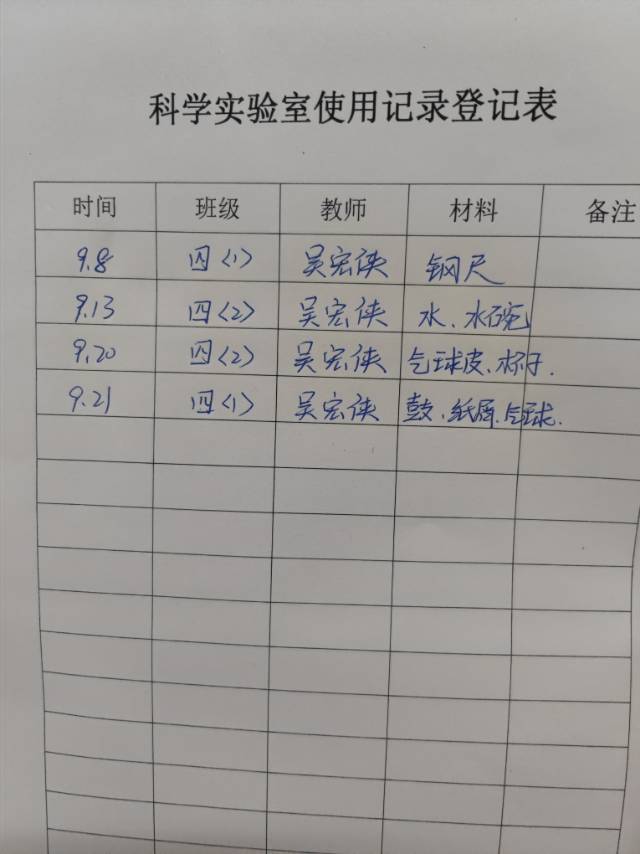 科学实验室使用记录登记表
时间 班级 教师 材料 备注
9.8 四〈1〉 吴宏侠 钢尺
9.13 四〈2〉 吴宏侠 水、水碗
9.20 四〈2〉 吴宏侠 气球皮、杯子.
9.21 四〈1〉 吴宏侠 鼓、纸屑、气球.